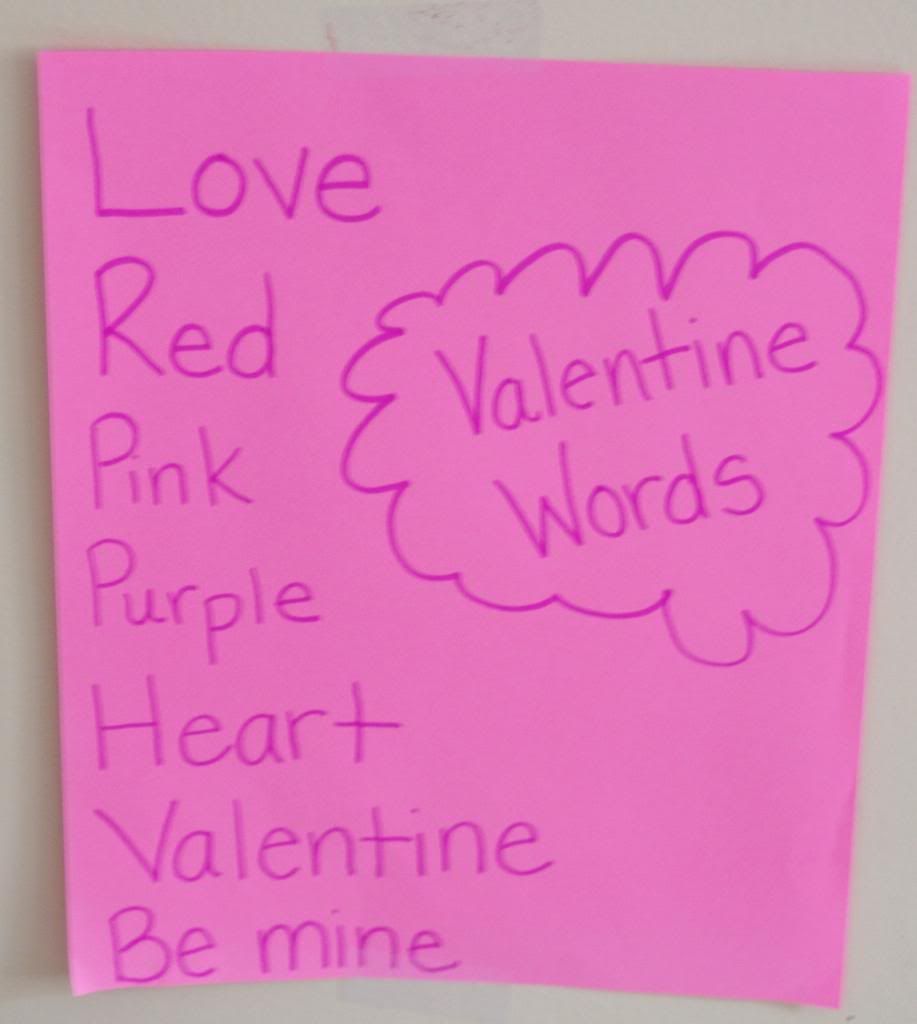 Love
Red
Pink
Purple
Heart
Valentine
Be mine
Valentine
Words